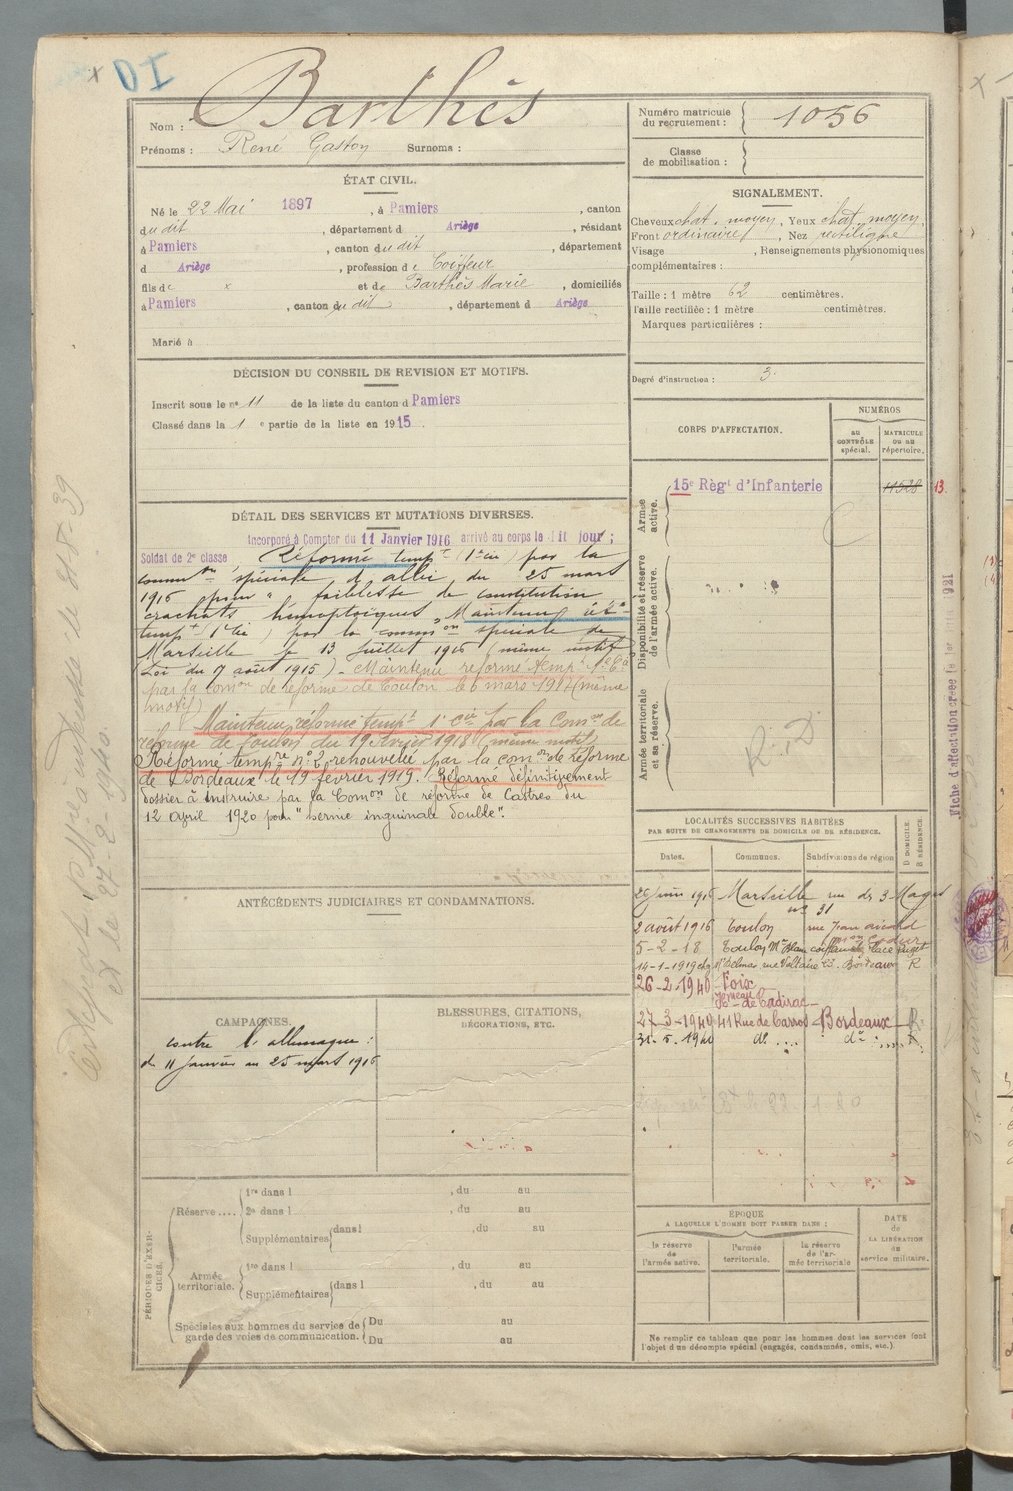 x
Nom : Barthès
Prénoms : René Gaston Surnoms :
Numéro matricule du recrutement : 1056
Classe de mobilisation :
ÉTAT CIVIL.
Né le 22 Mai 1897, à Pamiers, canton
dudit, département d Ariège, résidant
à Pamiers, canton dudit, département
d Ariège, profession de Coiffeur
fils de x et de Barthès Marie, domiciliés
à Pamiers, canton dudit, département d Ariège
Marié à
SIGNALEMENT.
Cheveux chat. moyen, Yeux chat. moyen.
Front ordinaire, Nez rectiligne
Visage , Renseignements physionomiques
complémentaires :
Taille : 1 mètre 62 centimètres.
Taille rectifiée : 1 mètre centimètres.
Marques particulières :
Degré d'instruction : 3.
DÉCISION DU CONSEIL DE REVISION ET MOTIFS.
Inscrit sous le no 11 de la liste du canton d Pamiers
Classé dans la 1 e partie de la liste en 1915.
CORPS D'AFFECTATION.
NUMÉROS
AU CONTRÔLE spécial.
MATRICULE OU AU répertoire.
Armée active.
15e Régt d'Infanterie 11528
13.
Disponibilité et réserve de l'armée active.
Armée territoriale et sa réserve.
R. D.
DÉTAIL DES SERVICES ET MUTATIONS DIVERSES.
Incorporé à Compter du 11 Janvier 1916 arrivé au corps le dit jour ;
Soldat de 2e classe Réformé tempre (1re cie) par la
common spéciale d'albi du 25 mars
1916 pour " faiblesse de constitution
crachats hémoptoïques". Maintenu
tempt (1re cie) par la common spéciale de
Marseille le 13 juillet 1916 (même motif
(Loi du 17 août 1915) - Maintenu réformé tempt
par la comon de réforme de Toulon le 6 mars 1917 (même
motif)
Maintenu réformé tempt 1e cie par la Comon de
réforme de Toulon du 19 février 1918 (même motif)
Réformé tempre n: 2 renouvelée par la comon de Réforme
de Bordeaux le 19 février 1919. Réformé définitivement
dossier à instruire par la Comon de réforme de Castres du
12 avril 1920 pour "hernie inguinale double".
LOCALITÉS SUCCESSIVES HABITÉES
PAR SUITE DE CHANGEMENTS DE DOMICILE OU DE RÉSIDENCE.
Dates. Communes. Subdivisions de région
D DOMICILE.
R RÉSIDENCE.
26 juin 1916 Marseille rue des 3 Mages
no 31
2 août 1916 Toulon rue Jean
5-2-18 Toulon place Puget
14-1-1919 rue Voltaire 23. Bordeaux R
26-2-1940 Foix
de Cadirac
27-3-1940 41 Rue de Carros Bordeaux R
31.5.1940 do do R
ANTÉCÉDENTS JUDICIAIRES ET CONDAMNATIONS.
CAMPAGNES.
contre l'allemagne :
du 11 janvier au 25 mars 1916
BLESSURES, CITATIONS,
DÉCORATIONS, ETC.
PÉRIODES D'EXERCICES.
Réserve....
1re dans l , du au
2e dans l , du au
Supplémentaires dans l , du au
Armée territoriale.
1re dans l , du au
Supplémentaires dans l , du au
Spéciales aux hommes du service de garde des voies de communication.
Du au
Du au
ÉPOQUE
A LAQUELLE L'HOMME DOIT PASSER DANS :
la réserve de l'armée active.
l'armée territoriale.
la réserve de l'armée territoriale
DATE de LA LIBÉRATION du service militaire.
Ne remplir ce tableau que pour les hommes dont les services font
l'objet d'un décompte spécial (engagés, condamnés, omis, etc.)